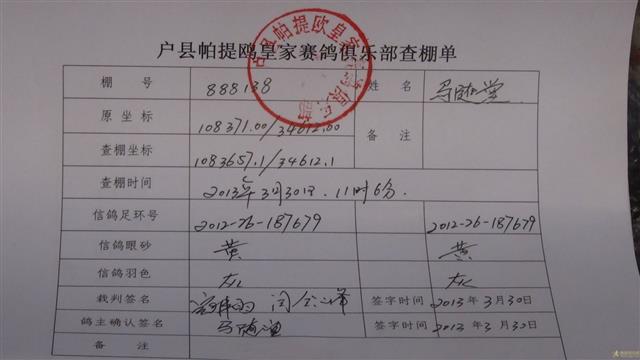 户县帕提欧皇家赛鸽俱乐部
户县帕提鸥皇家赛鸽俱乐部查棚单
棚 号 888138 姓 名
原 坐 标 108371.00/34612.00 备 注
查棚坐标 108365.1/34612.1
查棚时间 2013年3月30日.11时6分.
信鸽足环号 2012-26-187679 2012-26-187679
信鸽眼砂 黄 黄
信鸽羽色 灰 灰
裁判签名 签字时间 2013年3月30日
鸽主确认签名 签字时间 2013年3月30日
备 注